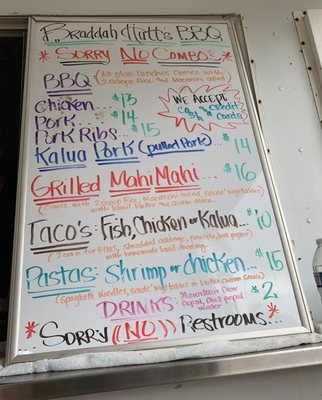 Braddah Hutt's BBQ
* Sorry No Combo's *
BBQ (All plate lunches comes with
2 scoops Rice and Macaroni Salad)
Chicken... $13
Pork... $14
Pork Ribs... $15
* WE ACCEPT
Cash & Credit
Cards
Kalua Pork (pulled Pork)... $14
Grilled Mahi Mahi... $16
(Comes with 2 scoop Rice, Macaroni salad, saute' vegetables
with basil butter and cream sauce)
Taco's: Fish, Chicken or Kalua... $10
(2 corn tortillas, shredded cabbage, pineapple, bell pepper)
with homemade basil dressing.
Pastas: Shrimp or chicken... $15
(Spaghetti Noodles, saute' vegetables in butter cream sauce)
DRINKS: Mountain Dew $2
Pepsi, Diet pepsi
Water
* Sorry ((NO)) Restrooms... *